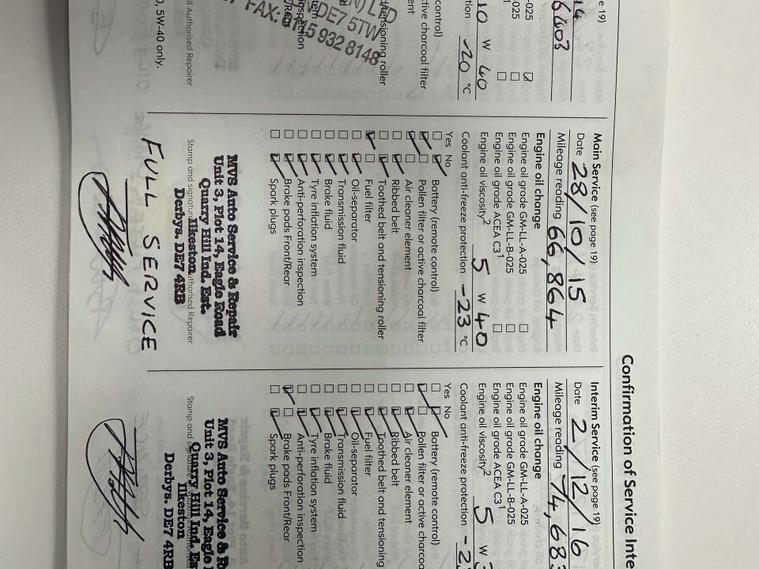 Confirmation of Service Inte
e 19)
6403
-025
025
10 W 40
-20 °C
ctive charcoal filter
ent
tensioning roller
FAX: 0115 932 8148
DE7 5TW
LTD
ll Authorised Repairer
0, 5W-40 only.
Main Service (see page 19)
Date 28/10/15
Mileage reading 66,864
Engine oil change
Engine oil grade GM-LL-A-025
Engine oil grade GM-LL-B-025
Engine oil grade ACEA C3¹
Engine oil viscosity² 5 W 40
Coolant anti-freeze protection -23 °C
Yes No
Battery (remote control)
Pollen filter or active charcoal filter
Air cleaner element
Ribbed belt
Toothed belt and tensioning roller
Fuel filter
Oil-separator
Transmission fluid
Brake fluid
Tyre inflation system
Anti-perforation inspection
Brake pads Front/Rear
Spark plugs
MVS Auto Service & Repair
Unit 3, Plot 14, Eagle Road
Quarry Hill Ind. Est.
Ilkeston
Derbys. DE7 4RB
Stamp and signature Authorised Repairer
FULL SERVICE
Interim Service (see page 19)
Date 2/12/16
Mileage reading 74,683
Engine oil change
Engine oil grade GM-LL-A-025
Engine oil grade GM-LL-B-025
Engine oil grade ACEA C3¹
Engine oil viscosity² 5 W
Coolant anti-freeze protection -2
Yes No
Battery (remote control)
Pollen filter or active charcoa
Air cleaner element
Ribbed belt
Toothed belt and tensioning
Fuel filter
Oil-separator
Transmission fluid
Brake fluid
Tyre inflation system
Anti-perforation inspection
Brake pads Front/Rear
Spark plugs
MVS Auto Service & R
Unit 3, Plot 14, Eagle
Quarry Hill Ind. Es
Ilkeston
Derbys. DE7 4RB
Stamp and